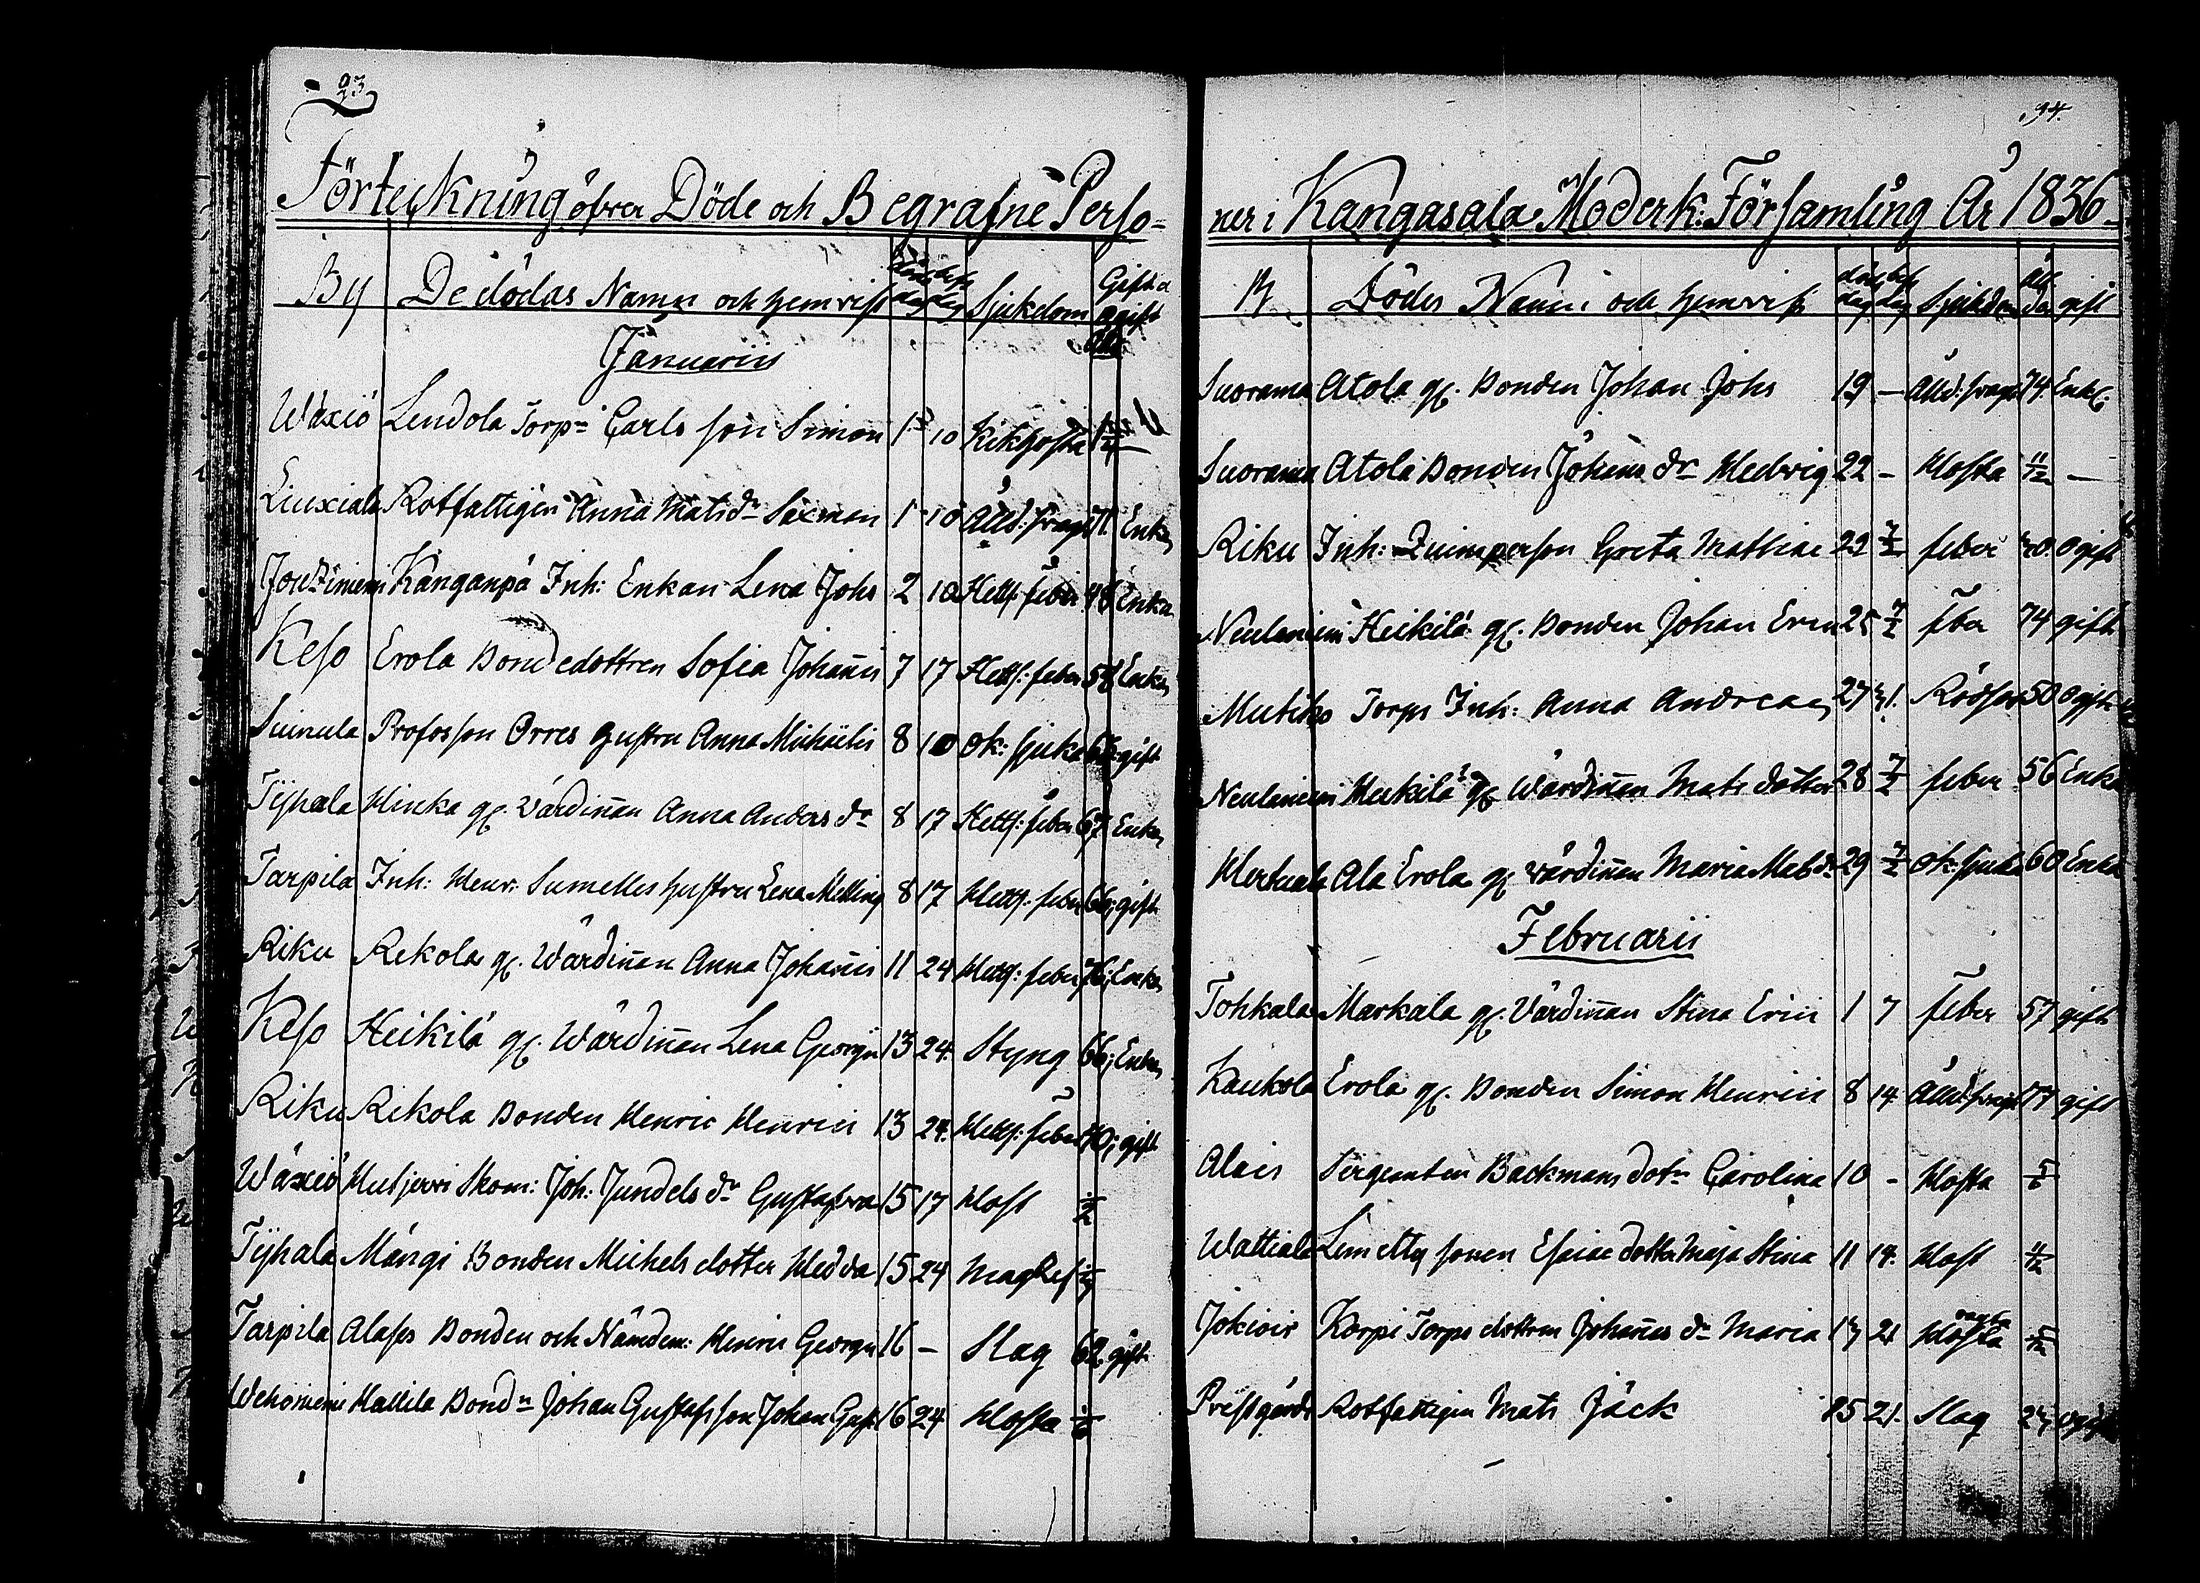 93
Förteckning öfver Döde och Begrafne Perso=
By De dödas Namn och hemvist Sjukdom Gift o ogift
Januarii
Wäxiö Lendola Torp: Carls son Simon 1 10 Kikhosta
Liuxiala Rotfattigen Anna Matsdr Saxman 1 10 Ålld: svagh 71 Enka
Kanganpä Inh: Enkan Lena Johs 2 10 Hetts: feber 48 Enka
Keso Erola Bondedottren Sofia Johannis 7 17 Hetts: feber 58 Enka
Suinula Profossen Orres hustru Anna Michaelis 8 10 Ok: sjuka gift
Tÿhala Hinka gl. Värdinnan Anna Anders dr 8 17 Hetts: feber 67 Enka
Tarpila Inh: Henr: Sumelles hustru Lena Melling 8 17 Hetts: feber 66, gift
Riku Rekola gl. Wärdinnan Anna Johannis 11 24 Hetts: feber 76, Enka
Keso Heikilä gl. Wärdinnan Lena Georgii 13 24. Styng 66, Enka
Riku Rekola Bonden Henric Henrici 13 24. Hetts: feber 40, gift
Wäxiö Skom: Joh: Jundels dr Gustafva 15 17 Host
Tÿhala Mångi Bonden Michels dotter Hedda 15 24 Magref
Tarpila Alases Bonden och Nämdem: Henric Georgii 16 – Slag 62, gift
Wehoniemi Mattila Bondn Johan Gustafsson Johan Gust 16 24 Hosta
94.
ner i Kangasala Moderk: Församling År 1836
B Dödes Namn och hemvist död dag beg dag Sjukdom ål der gift
Suorama Atola gl. Bonden Johan Johs 19 – Ålld: svagh 74. Enkl.
Suorama Atola Bonden Johans dr Hedvig 22 – Hosta 11/12 –
Riku Inh: Qvinsperson Greta Mathiae 22 7/2 feber 40. Ogift
Neulaniemi Heikilä gl. Bonden Johan Erici 25 7/2 feber 74 gift
Mutiko Torps Inh: Anna Andreae 27 Rödsot 50 Ogift
Neulaniemi Heikilä gl. Wärdinnan Mats dotter 28 7/2 feber 56 Enka
Hertuala Ala Erola gl. Wärdinnan Maria Mats dr 29 7/2 Ok: sjuka 60 Enka
Februarii
Tohkala Markala gl. Värdinnan Stina Erici 1 7 feber 57 gift
Kaukola Erola gl. Bonden Simon Henrici 8 14. Ålld: svagh 77 gift
Alais Sergeanten Backmans dotr Carolina 10 – Hosta
Wattiala Lemetty sonen Esaiae dotter Maja Stina 11 14. Host
Jokiois Korpi Torps dottren Johannes dr Maria 21 Hosta
Prestgårds Rotfattigen Mats Jäck 15 21. Slag ogift